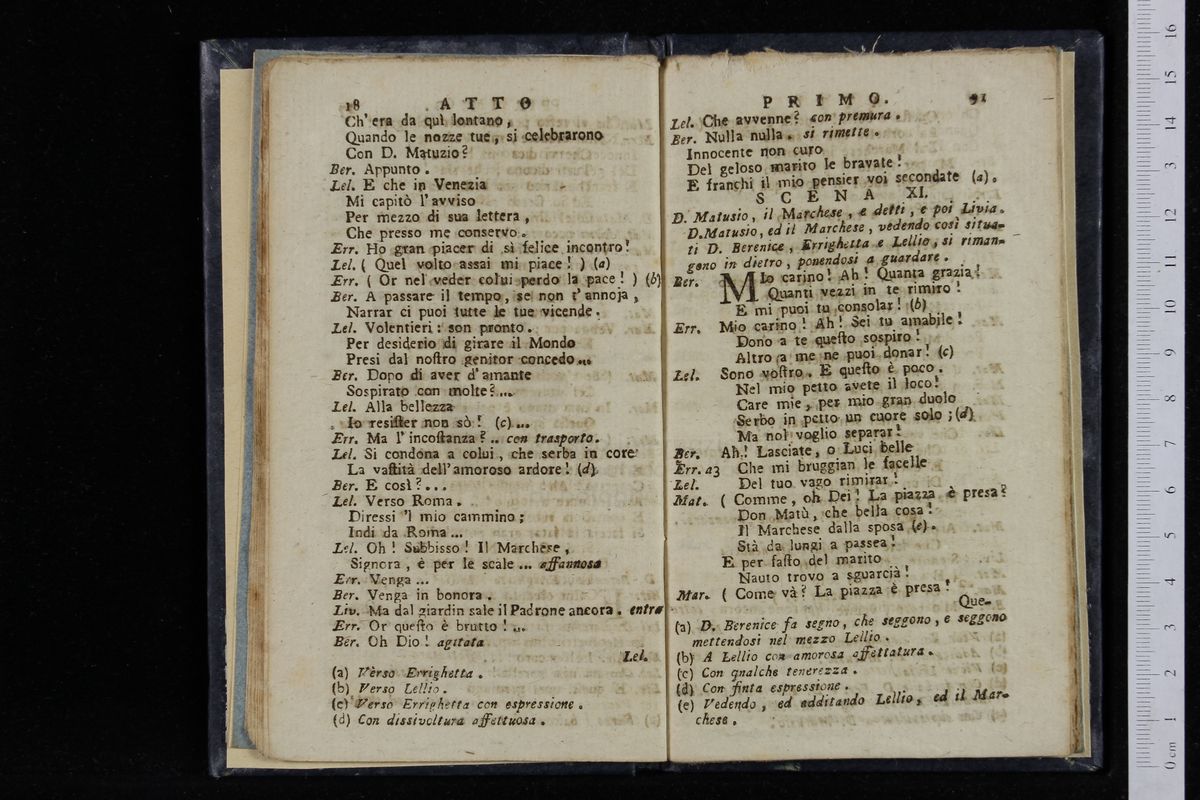 18 ATTO
Ch' era da quì lontano,
Quando le nozze tue, si celebrarono
Con D. Matuzio?
Ber. Appunto.
Lel. E che in Venezia
Mi capitò l'avviso
Per mezzo di sua lettera,
Che presso me conservo.
Err. Ho gran piacer di sì felice incontro!
Lel. ( Quel volto assai mi piace! ) (a)
Err. ( Or nel veder colui perdo la pace! ) (b)
Ber. A passare il tempo, se non t'annoja,
Narrar ci puoi tutte le tue vicende.
Lel. Volentieri: son pronto.
Per desiderio di girare il Mondo
Presi dal noſtro genitor concedo...
Ber. Dopo di aver d'amante
Sospirato con molte?...
Lel. Alla bellezza
Io resiſter non sò! (c)...
Err. Ma l'incoſtanza?.. con trasporto.
Lel. Si condona a colui, che serba in core
La vaſtità dell'amoroso ardore! (d)
Ber. E così?...
Lel. Verso Roma.
Diressi 'l mio cammino;
Indi da Roma...
Lel. Oh! Subbisso! Il Marchese,
Signora, è per le scale... affannosa
Err. Venga...
Ber. Venga in bonora.
Liv. Ma dal giardin sale il Padrone ancora. entra
Err. Or queſto è brutto!...
Ber. Oh Dio! agitata
Lel.
(a) Vèrso Errighetta.
(b) Verso Lellio.
(c) Verso Errighetta con espressione.
(d) Con dissivoltura affettuosa.
PRIMO. 91
Lel. Che avvenne? con premura.
Ber. Nulla nulla. si rimette.
Innocente non curo
Del geloso marito le bravate!
E franchi il mio pensier voi secondate (a).
SCENA XI.
D. Matusio, il Marchese, e detti, e poi Livia.
D.Matusio, ed il Marchese, vedendo così situa-
ti D. Berenice, Errighetta e Lellio, si riman-
gono in dietro, ponendosi a guardare.
Ber. MIo carino! Ah! Quanta grazia!
Quanti vezzi in te rimiro!
E mi puoi tu consolar! (b)
Err. Mio carino! Ah! Sei tu amabile!
Dono a te queſto sospiro!
Altro a me ne puoi donar! (c)
Lel. Sono voſtro. E queſto è poco.
Nel mio petto avete il loco!
Care mie, per mio gran duolo
Serbo in petto un cuore solo; (d)
Ma nol voglio separar!
Ber. Ah! Lasciate, o Luci belle
Err. a3 Che mi bruggian le facelle
Lel. Del tuo vago rimirar!
Mat. ( Comme, oh Dei! La piazza è presa?
Don Matù, che bella cosa!
Il Marchese dalla sposa (e).
Stà da lungi a passea!
E per faſto del marito
Nauto trovo a sguarcià!
Mar. ( Come và? La piazza è presa!
Que-
(a) D. Berenice fa segno, che seggono, e seggono
mettendosi nel mezzo Lellio.
(b) A Lellio con amorosa affettatura.
(c) Con qnalche tenerezza.
(d) Con finta espressione.
(e) Vedendo, ed additando Lellio, ed il Mar-
chese.